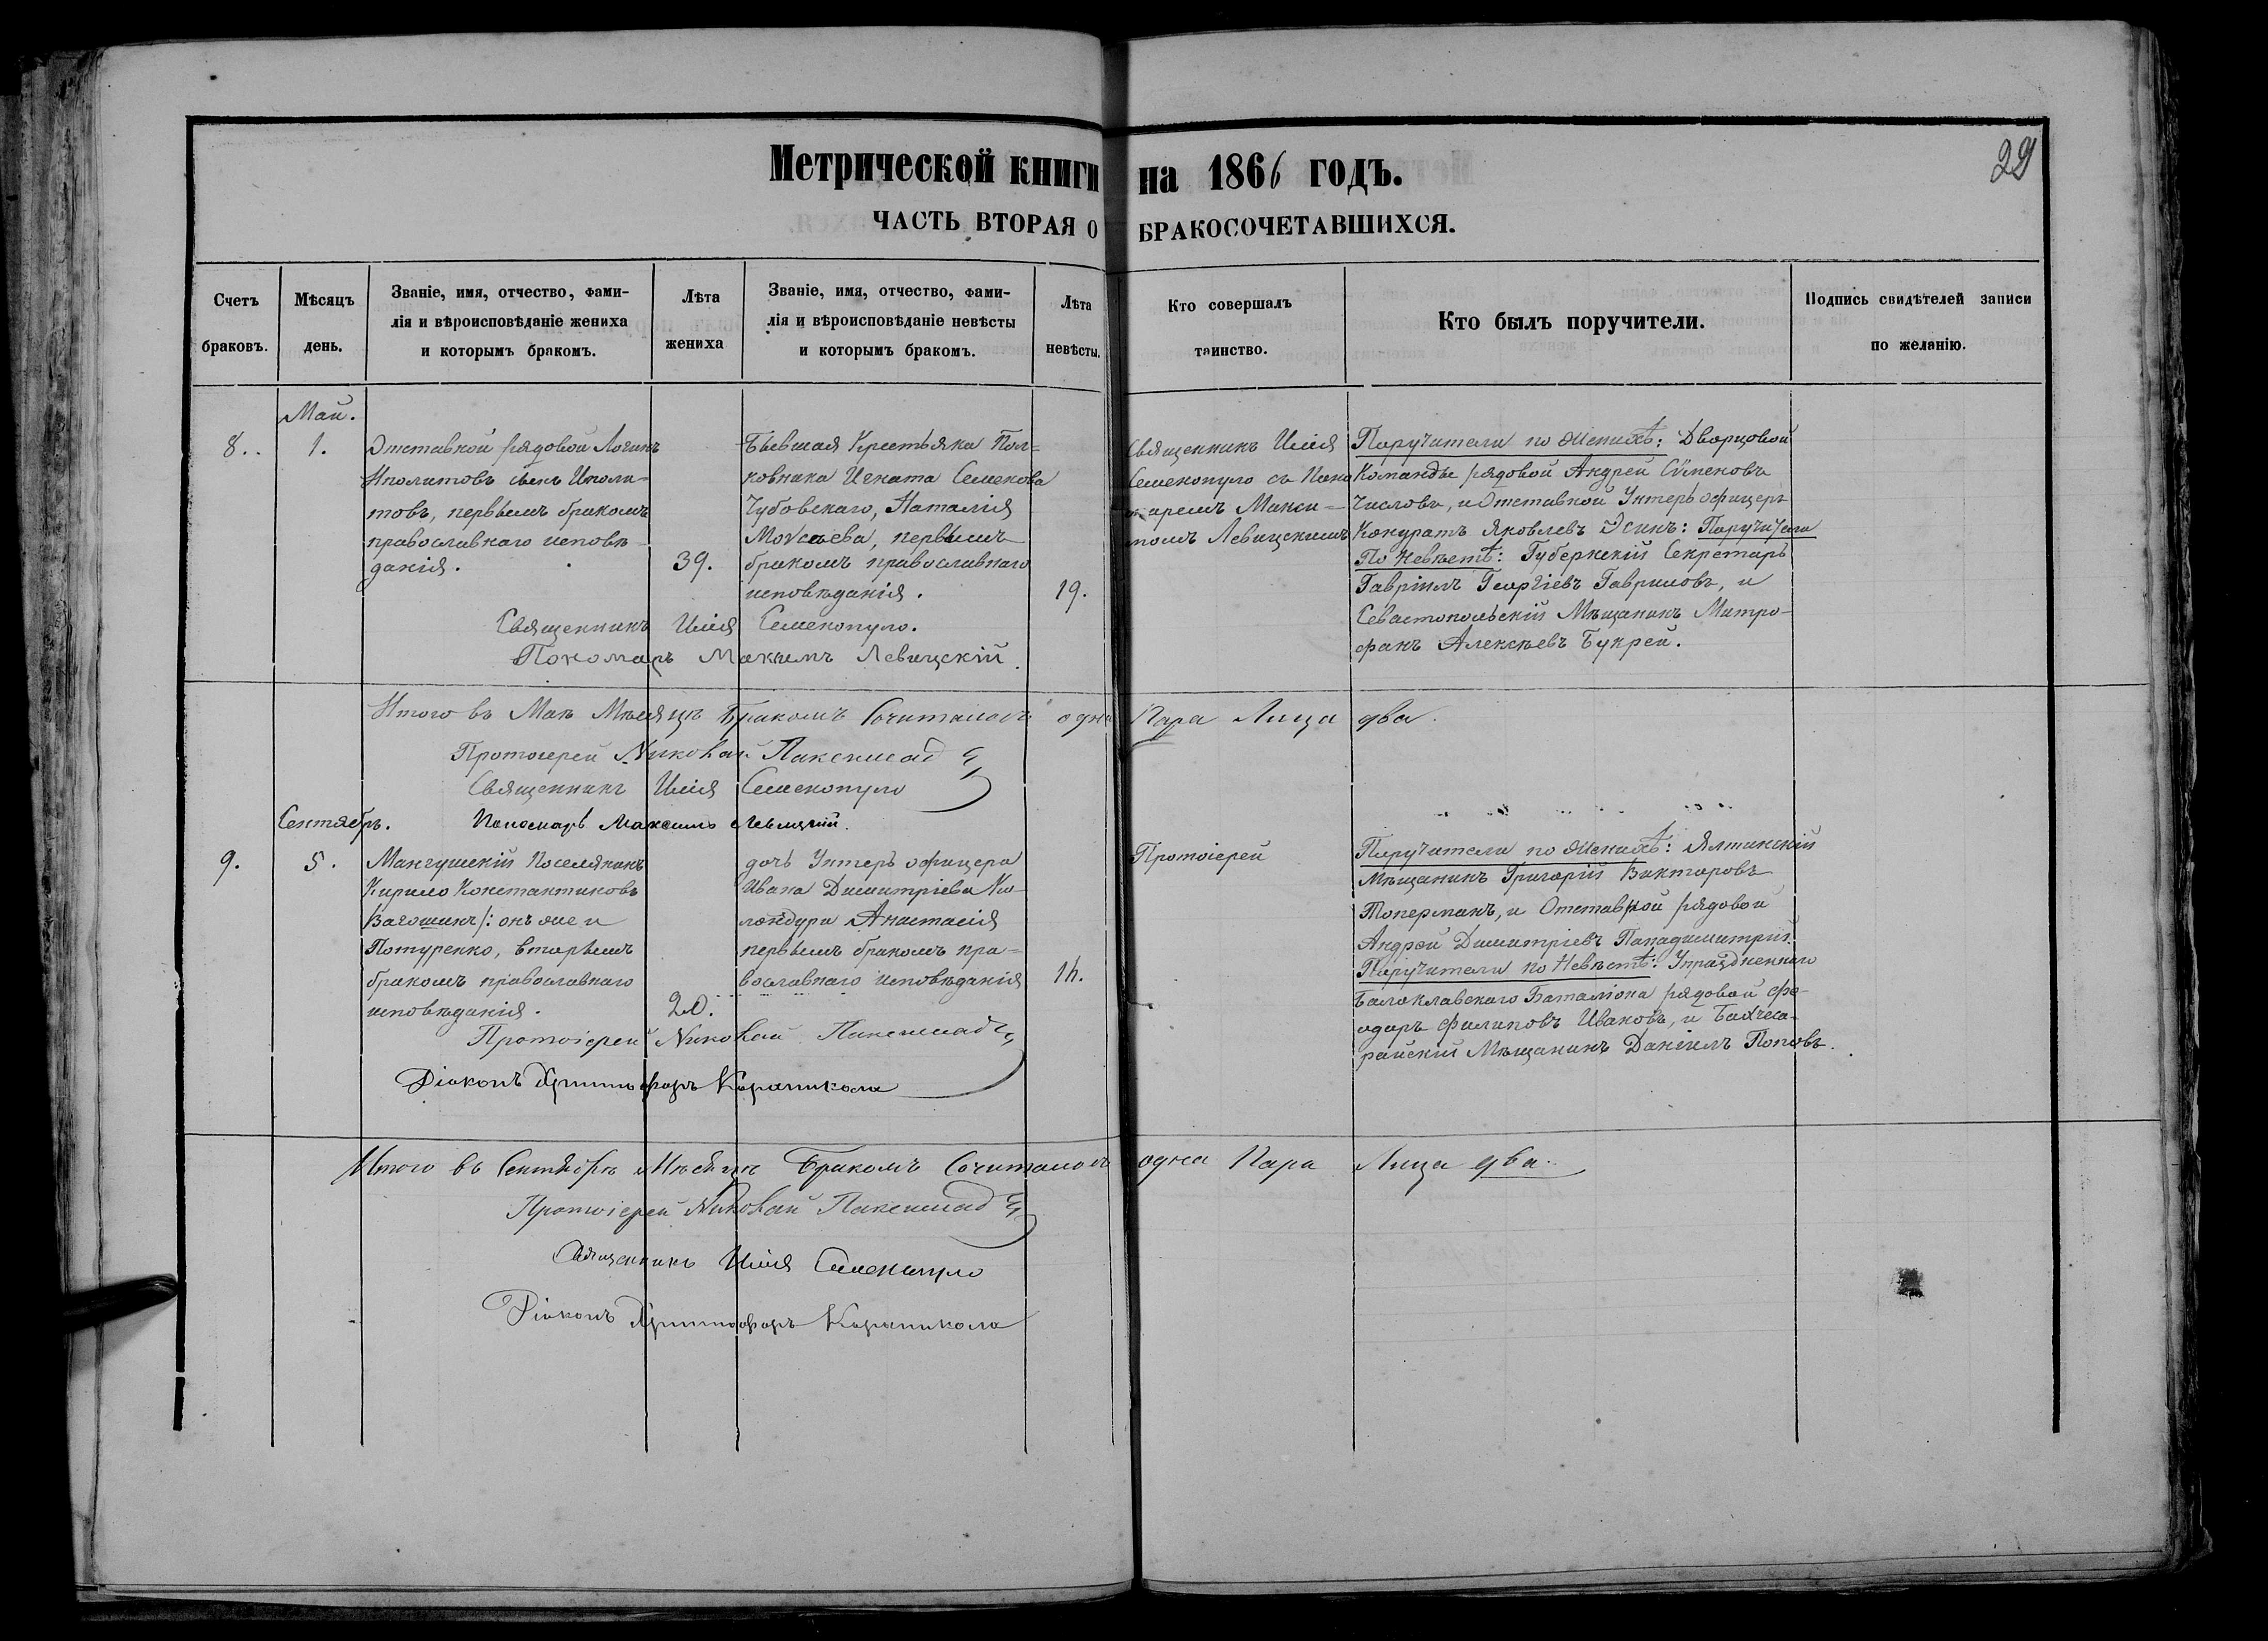 Метрической книги на 1866 годъ.
29
ЧАСТЬ ВТОРАЯ О БРАКОСОЧЕТАВШИХСЯ.
Счетъ браковъ.
Мѣсяцъ день.
Званіе, имя, отчество, фами-
лія и вѣроисповѣданіе жениха
и которымъ бракомъ.
Лѣта жениха
Званіе, имя, отчество, фами-
лія и вѣроисповѣданіе невѣсты
и которымъ бракомъ.
Лѣта невѣсты.
Кто совершалъ таинство.
Кто былъ поручители.
Подпись свидѣтелей записи
по желанію.
Май.
8..
1.
Отставной рядовой Логинъ
Иполитовъ сынъ Иполи-
товъ, первымъ бракомъ
православнаго исповѣ-
данія.
39.
Бывшая Крестьянка Пол-
ковника Игната Семенова
Чубовскаго, Наталія
Моѵсеева, первымъ
бракомъ православнаго
исповѣданія.
19.
Священникъ Илія
Семенопуло съ Поно
маремъ Макси-
момъ Левицскимъ
Поручители по Женихѣ: Дворцовой
Команды рядовой Андрей Сѵменовъ
Числовъ, и Отставной Унтеръ офицеръ
Кондратъ Яковлевъ Эсинъ: Поручители
По Невѣстѣ: Губернскій Секретарь
Гавріилъ Георгіевъ Гавриловъ, и
Севастопольскій Мѣщанинъ Митро-
фанъ Алексѣевъ Букрей.
Священникъ Илія Семенопуло.
Пономарь Максимъ Левицскій.
Итого въ Маѣ Мѣсяцѣ Бракомъ Сочиталось одна Пара Лица два.
Протоіерей Николай
Священникъ Илія Семенопуло
Пономарь Максимъ Левицкій.
Сентябрь.
9.
5.
Мангушскій Поселянинъ
Кирило Константиновъ
/: онъ же и
Потуренко, вторымъ
бракомъ православнаго
исповѣданія.
20.
дочь Унтеръ офицера
Ивана Димитріева Ка-
лондура Анастасія
первымъ бракомъ пра-
вославнаго исповѣданія
Протоіерей
Поручители по Женихѣ: Ялтинскій
Мѣщанинъ Григорій Викторовъ
Топерманъ, и Отставной рядовой
Андрей Димитріевъ Пападимитрій.
Поручители по Невѣстѣ: Упраздненнаго
Балаклавскаго Баталіона рядовой Фе-
одоръ Филиповъ Ивановъ, и Бахчеса-
райскій Мѣщанинъ Даніилъ Поповъ.
Протоіерей Николай
Діаконъ Христофоръ Караникола
Итого въ Сентябрѣ Мѣсяцѣ Бракомъ Сочиталось одна Пара Лица два.
Протоіерей Николай
Священникъ Илія Семенопуло
Діаконъ Христофоръ Караникола